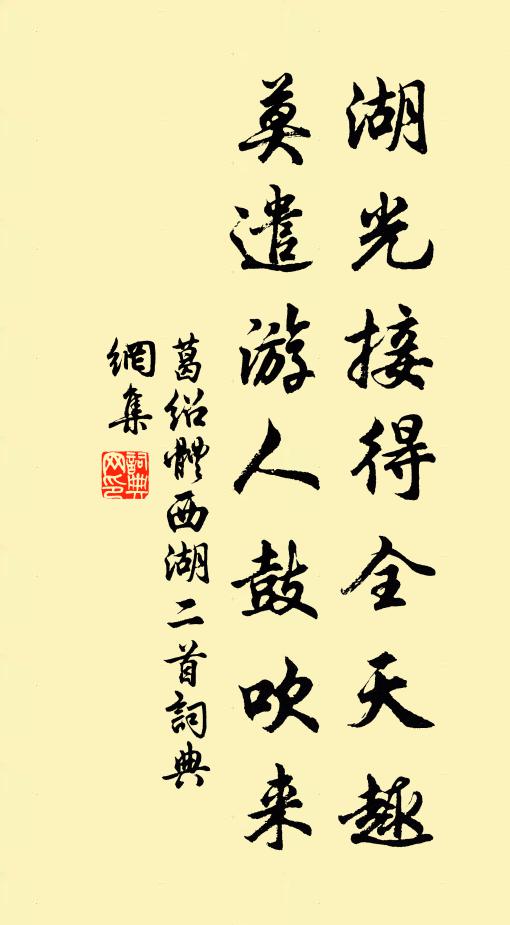 湖光接得全天趣
莫遣游人鼓吹来
葛绍體西湖二首詞典
網集
詞典网印